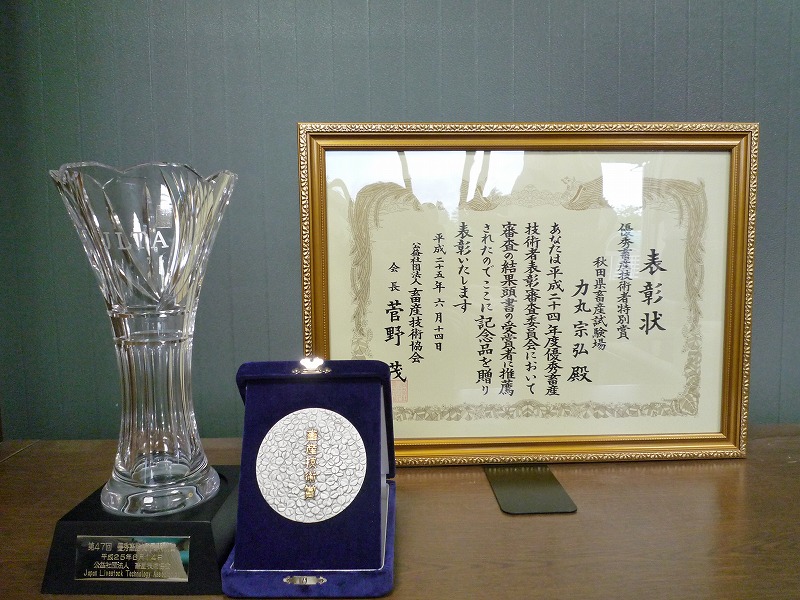 表彰状
優秀畜産技術者特別賞
秋田県畜産試験場
力丸 宗弘 殿
あなたは平成二十四年度優秀畜産
技術者表彰審査委員会において
審査の結果頭書の受賞者に推薦
されたのでここに記念品を贈り
表彰いたします
平成二十五年六月十四日
公益社団法人畜産技術協会
会長 菅野 茂
JLTA
畜産技術賞
第47回
平成25年6月14日
公益社団法人 畜産技術協会
Japan Livestock Technology Assoc.